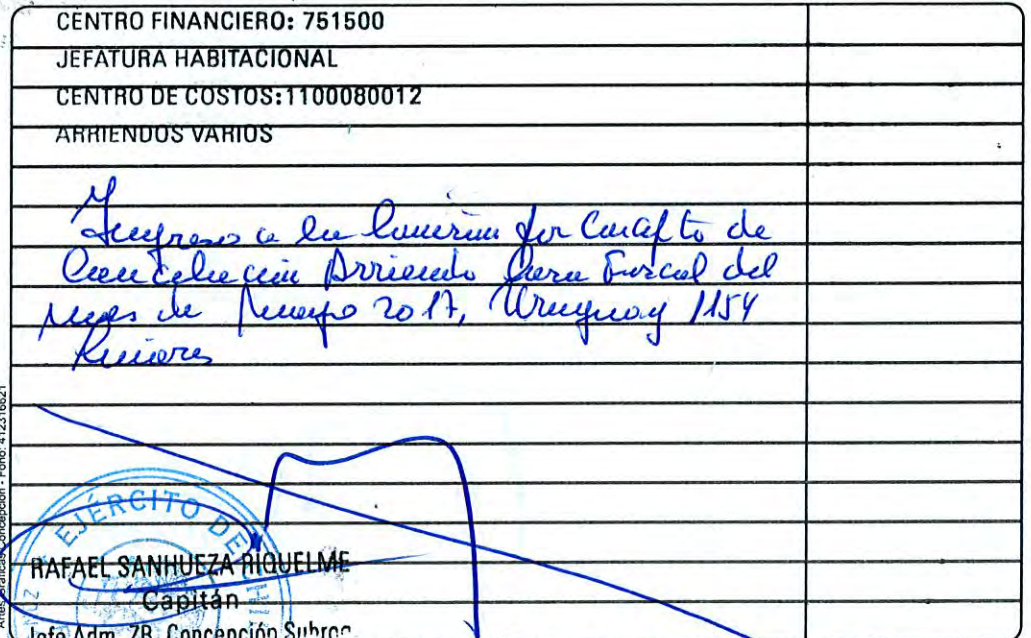 CENTRO FINANCIERO: 751500
JEFATURA HABITACIONAL
CENTRO DE COSTOS:1100080012
ARRIENDOS VARIOS
Ingreso a la por Concepto de
Cancelación Arriendo Casa Fiscal del
mes de 2017, Uruguay 1154
Linares
EJÉRCITO DE CHI
RAFAEL SANHUEZA RIQUELME
Capitán
Jefe Adm. ZB. Concepción Subrog
Artes Gráficas Concepción - Fono: 412316621